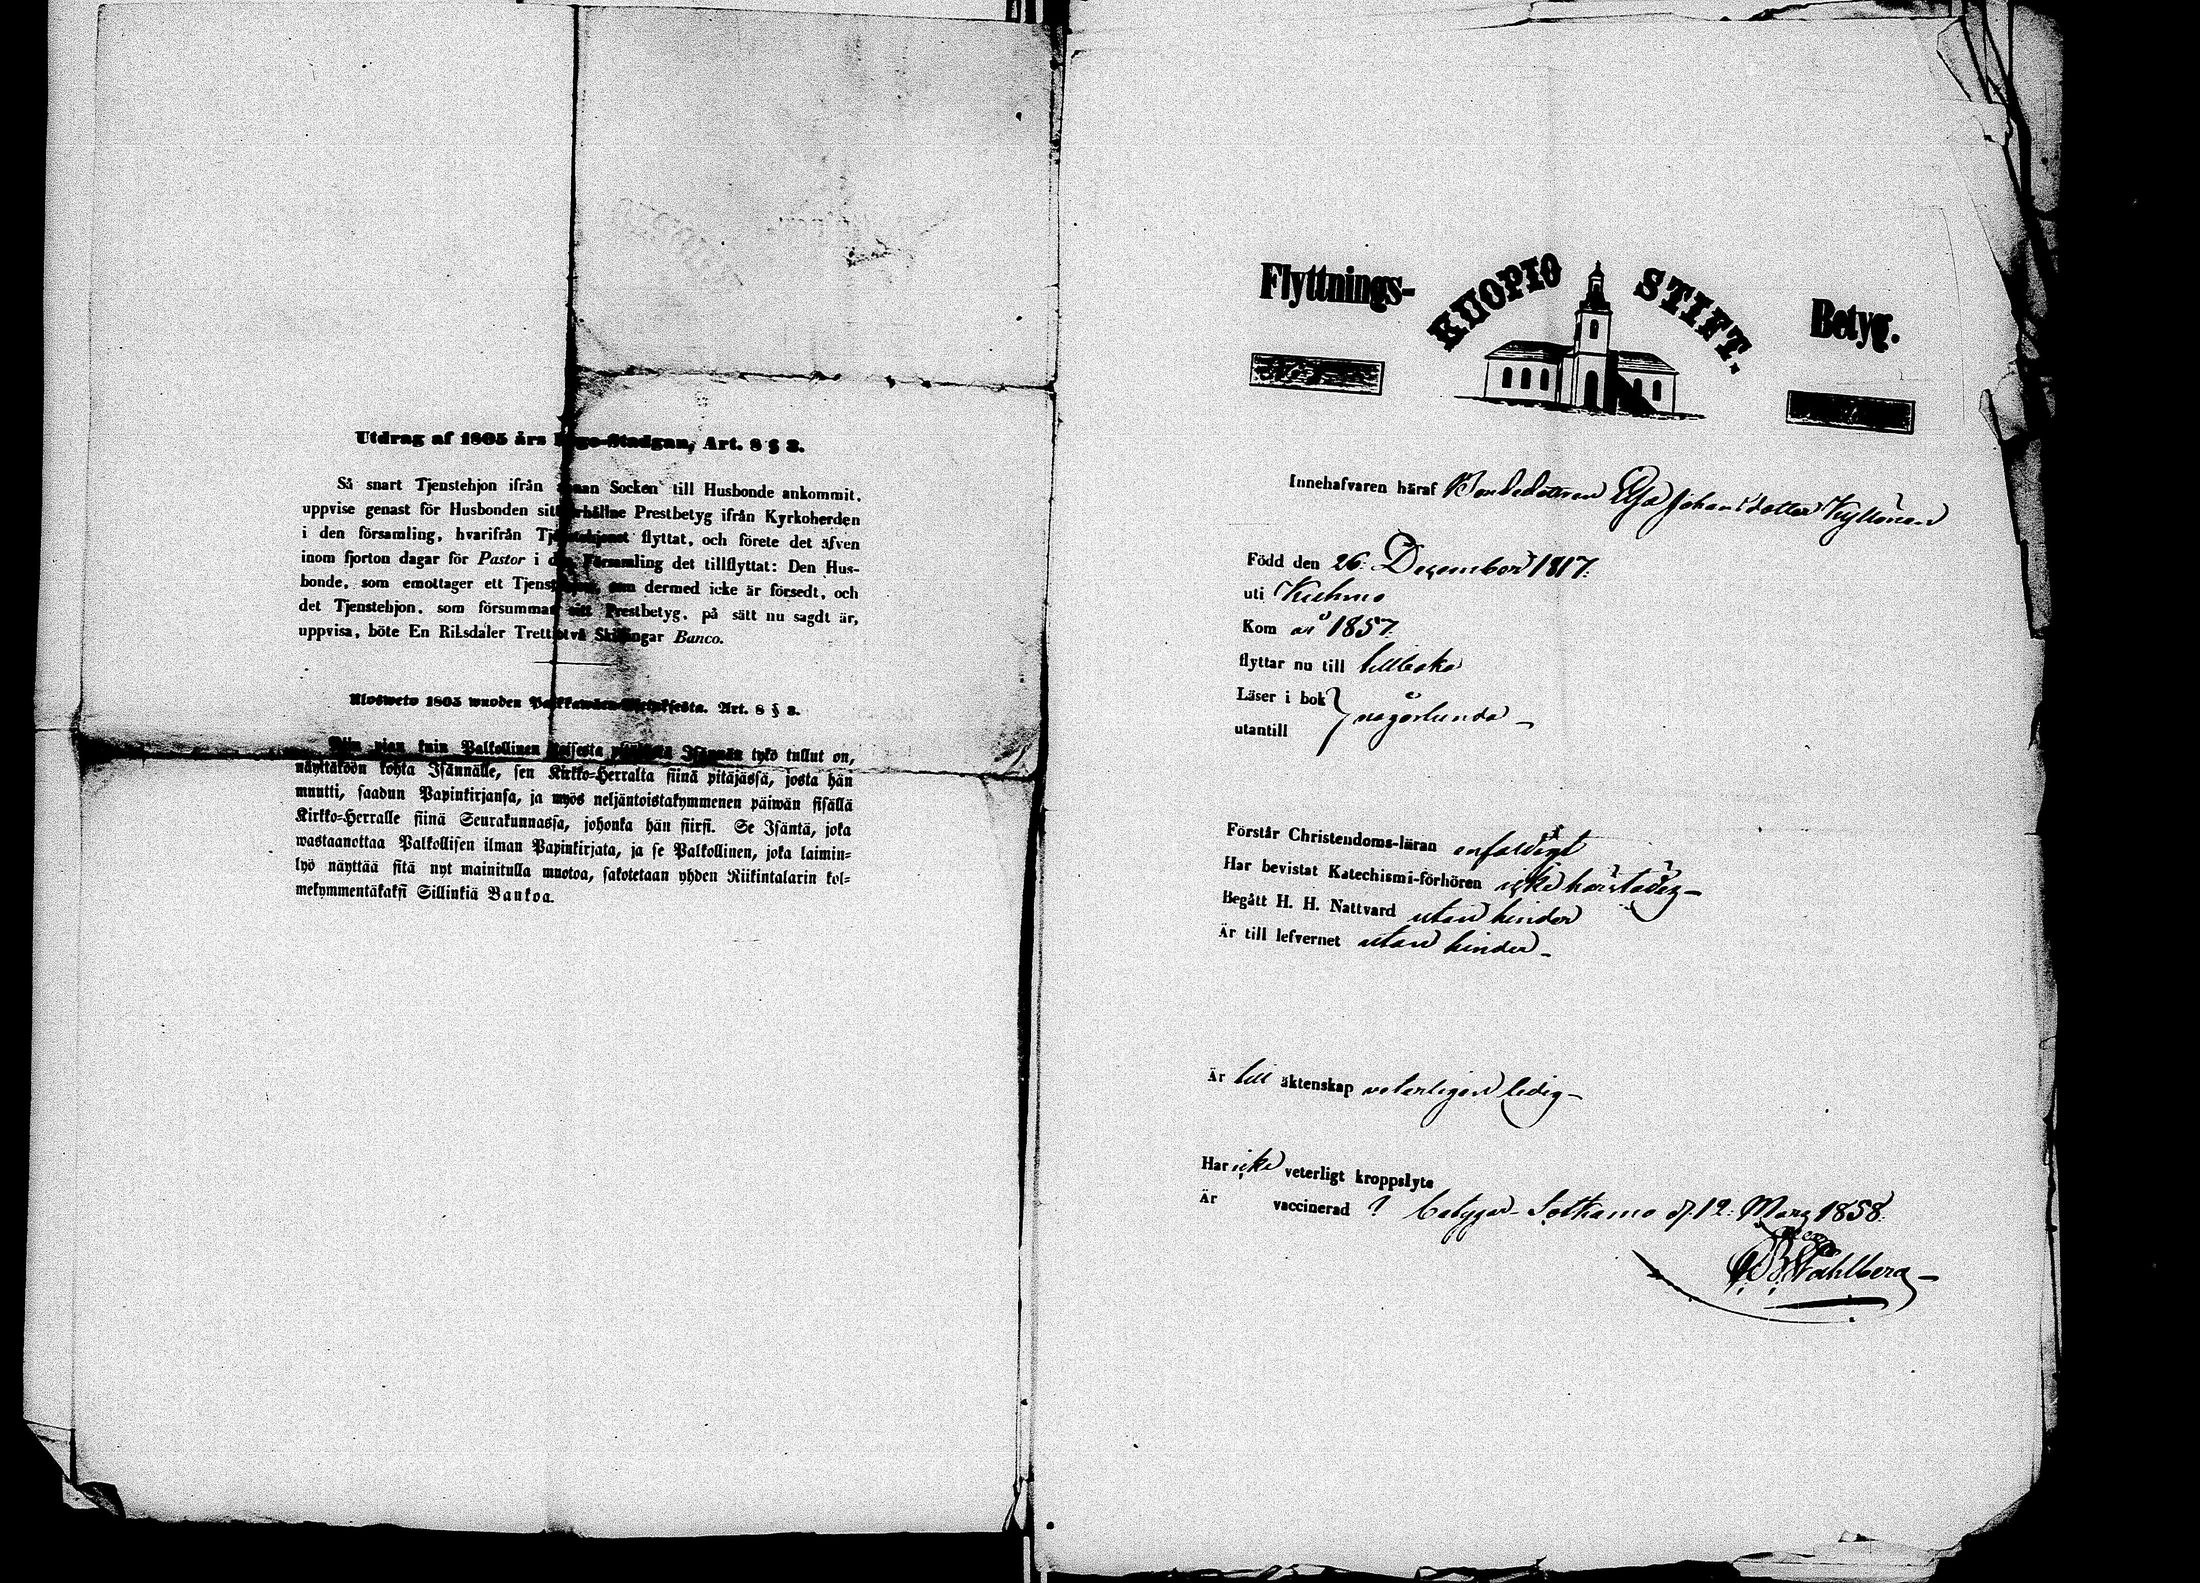 Utdrag af 1805 års Lego-Stadgan, Art. 8 § 3.
Så snart Tjenstehjon ifrån annan Socken till Husbonde ankommit,
uppvise genast för Husbonden sitt erhållne Prestbetyg ifrån Kyrkoherden
i den församling, hvarifrån Tjenstehjonet flyttat, och förete det äfven
inom fjorton dagar för Pastor i den Församling det tillflyttat: Den Hus-
bonde, som emottager ett Tjenstehjon, som dermed icke är försedt, och
det Tjenstehjon, som försummat sitt Prestbetyg, på sätt nu sagdt är,
uppvisa, böte En Riksdaler Trettiotvå Skillingar Banco.
Ulosweto 1805 wuoden Palkkawäen Art. 8 § 3.
Niin pian kuin Palkollinen toisesta pitäjästä Isännän tykö tullut on,
näyttäköön kohta Isännälle, sen Kirkko-Herralta siinä pitäjässä, josta hän
muutti, saadun Papinkirjansa, ja myös neljäntoistakymmenen päiwän sisällä
Kirkko-Herralle siinä Seurakunnassa, johonka hän siirsi. Se Isäntä, joka
wastaanottaa Palkollisen ilman Papinkirjata, ja se Palkollinen, joka laimin-
lyö näyttää sitä nyt mainitulla muotoa, sakotetaan yhden Riikintalarin kol-
mekymmentäkaksi Sillinkiä Bankoa.
Flyttnings- KUOPIO STIFT. Betyg.
Innehafvaren häraf Bondedottren Elsa Johansdotter Kyllönen
Född den 26. December 1817.
uti Kuhmo
Kom år 1857.
flyttar nu till tillbaka
Läser i bok
utantill någorlunda
Förstår Christendoms-läran enfaldigt
Har bevistat Katechismi-förhören icke härstädes
Begått H. H. Nattvard utan hinder
Är till lefvernet utan hinder
Är till äktenskap veterligen ledig
Har icke veterligt kroppslyte
Är vaccinerad ? betygar Sotkamo d. 12. Mars 1858.
Wahlberg